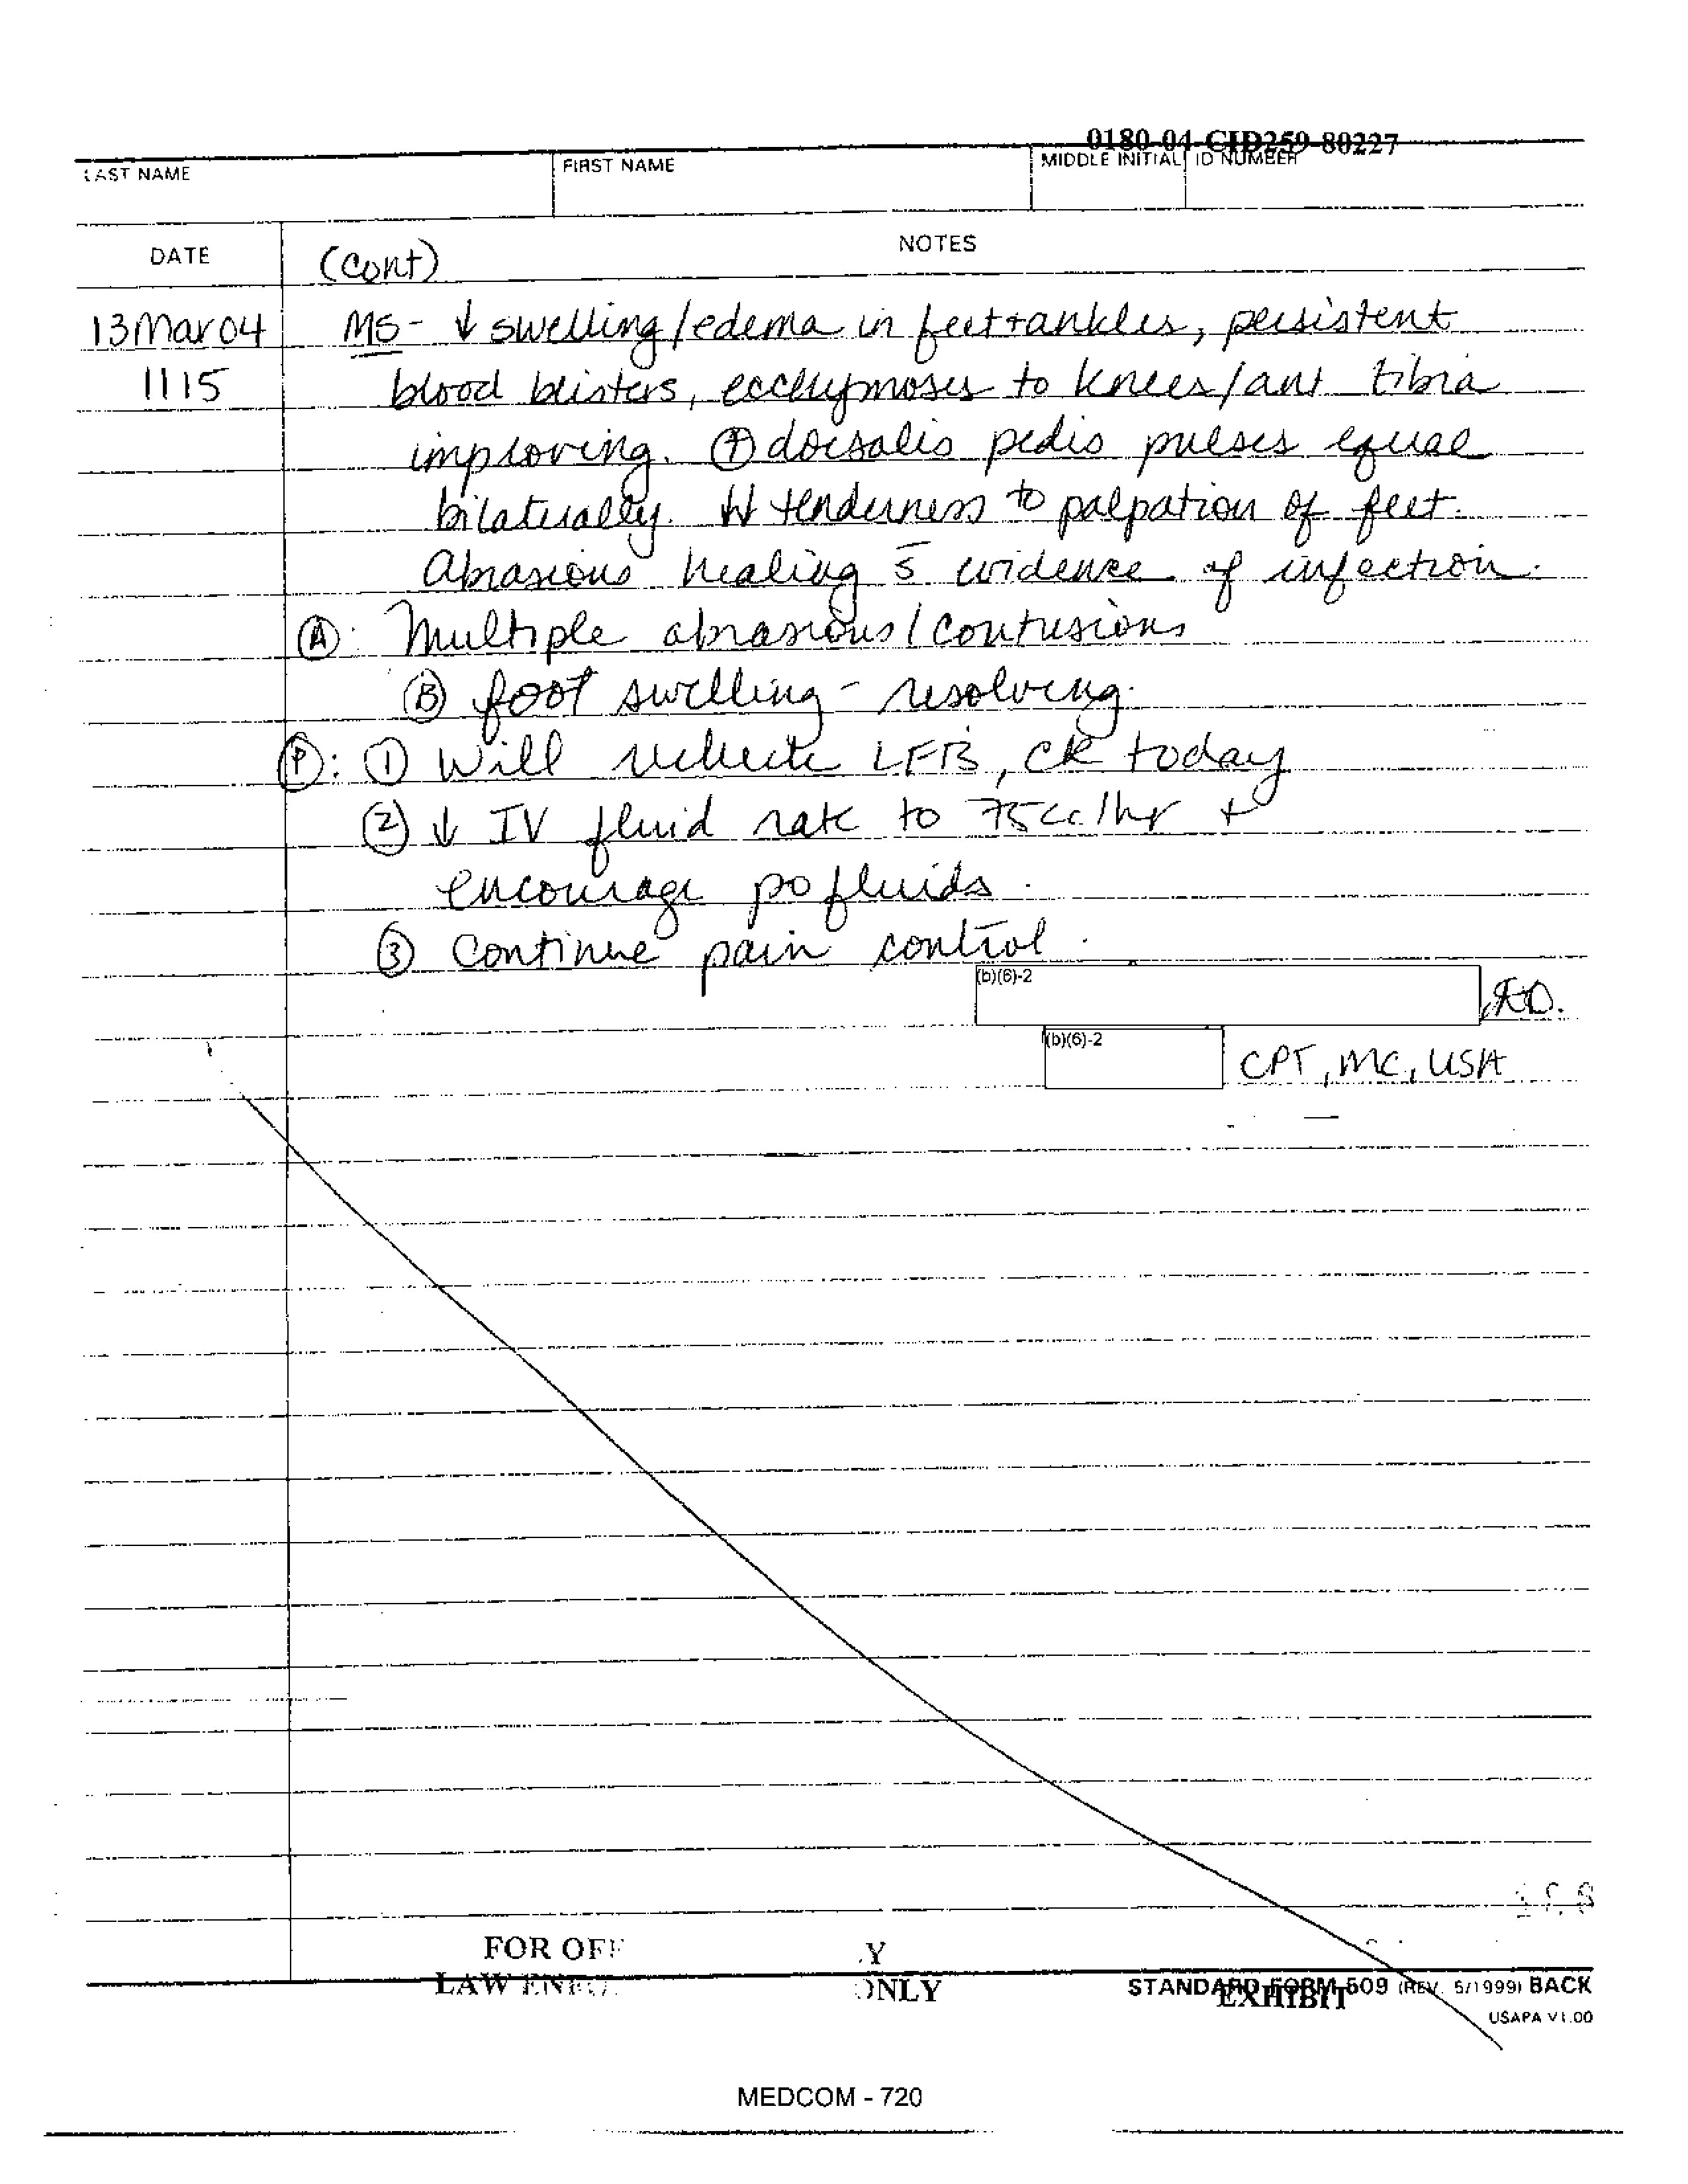 0180-04-CID259-80227
LAST NAME FIRST NAME MIDDLE INITIAL ID NUMBER
DATE NOTES
(cont)
13 Mar 04 MS - ↓ swelling/edema in feet + ankles, persistent
1115 blood blisters, ecchymoses to knees/ant tibia
improving. ⊕ dorsalis pedis pulses equal
bilaterally. ↓↓ tenderness to palpation of feet.
Abrasions healing s̄ evidence of infection.
Ⓐ: Multiple abrasions/contusions
Ⓑ foot swelling - resolving.
Ⓟ: ① Will recheck LFTs, CK today
② ↓ IV fluid rate to 75cc/hr +
encourage po fluids.
③ Continue pain control.
(b)(6)-2
(b)(6)-2 CPT, MC, USA
FOR OFF Y
LAW ENFO ONLY
STANDARD FORM 509 (REV. 5/1999) BACK
EXHIBIT
USAPA V1.00
MEDCOM - 720